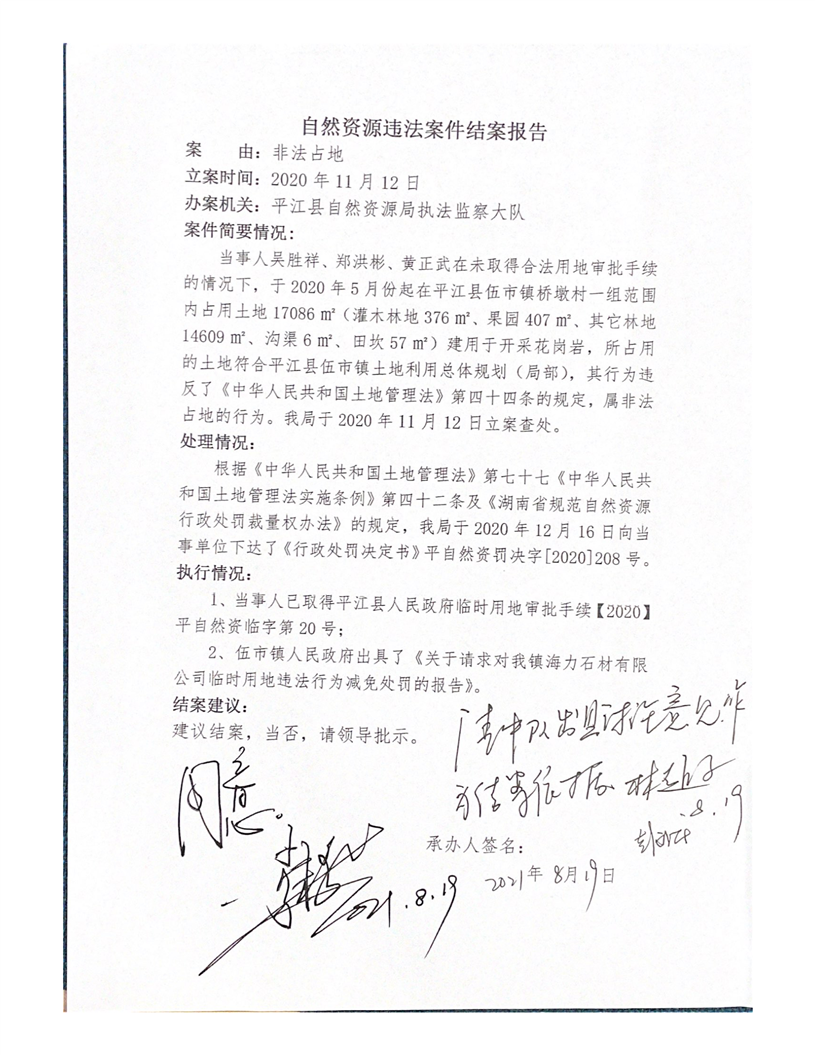 自然资源违法案件结案报告
案　　由：非法占地
立案时间：2020 年 11 月 12 日
办案机关：平江县自然资源局执法监察大队
案件简要情况：
当事人吴胜祥、郑洪彬、黄正武在未取得合法用地审批手续
的情况下，于 2020 年 5 月份起在平江县伍市镇桥墩村一组范围
内占用土地 17086 ㎡（灌木林地 376 ㎡、果园 407 ㎡、其它林地
14609 ㎡、沟渠 6 ㎡、田坎 57 ㎡）建用于开采花岗岩，所占用
的土地符合平江县伍市镇土地利用总体规划（局部），其行为违
反了《中华人民共和国土地管理法》第四十四条的规定，属非法
占地的行为。我局于 2020 年 11 月 12 日立案查处。
处理情况：
根据《中华人民共和国土地管理法》第七十七《中华人民共
和国土地管理法实施条例》第四十二条及《湖南省规范自然资源
行政处罚裁量权办法》的规定，我局于 2020 年 12 月 16 日向当
事单位下达了《行政处罚决定书》平自然资罚决字[2020]208 号。
执行情况：
1、当事人已取得平江县人民政府临时用地审批手续【2020】
平自然资临字第 20 号；
2、伍市镇人民政府出具了《关于请求对我镇海力石材有限
公司临时用地违法行为减免处罚的报告》。
结案建议：
建议结案，当否，请领导批示。
请中队出具 意见作
8.19
同意。
2021.8.19
承办人签名：
2021年 8月19日